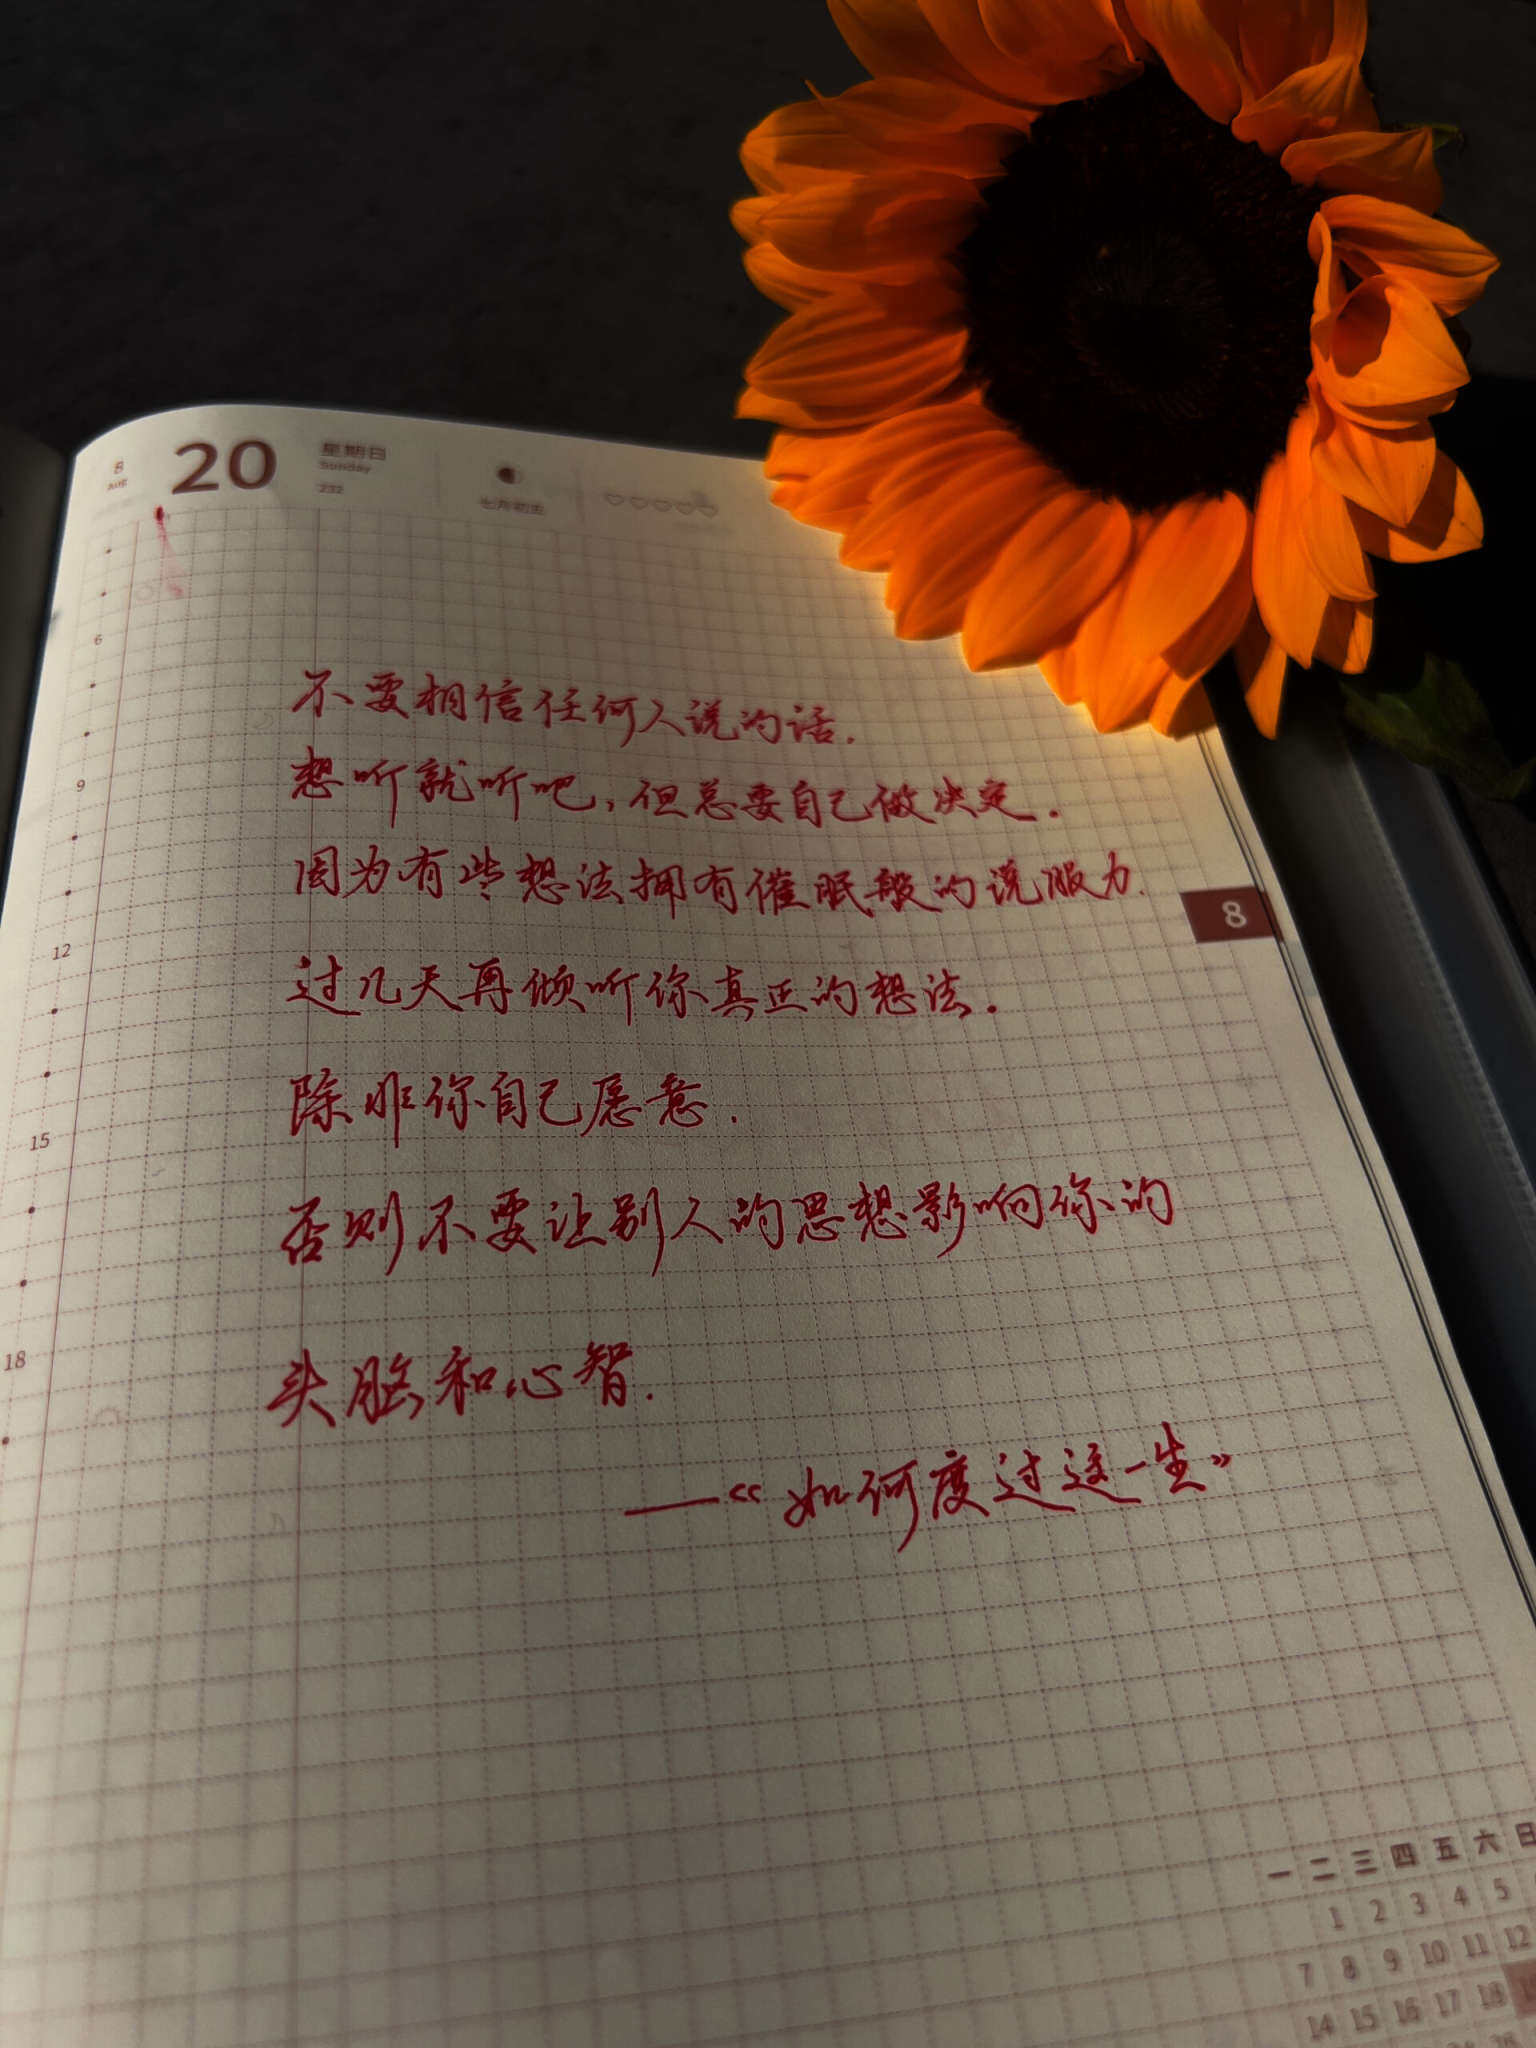 8
Aug
20
星期日
Sunday
232
七月初五
6
9
12
15
18
不要相信任何人说的话.
想听就听吧,但总要自己做决定.
因为有些想法拥有催眠般的说服力.
过几天再倾听你真正的想法.
除非你自己愿意.
否则不要让别人的思想影响你的
头脑和心智.
——《如何度过这一生》
8
一 二 三 四 五 六 日
1 2 3 4 5
7 8 9 10 11 12
14 15 16 17 18